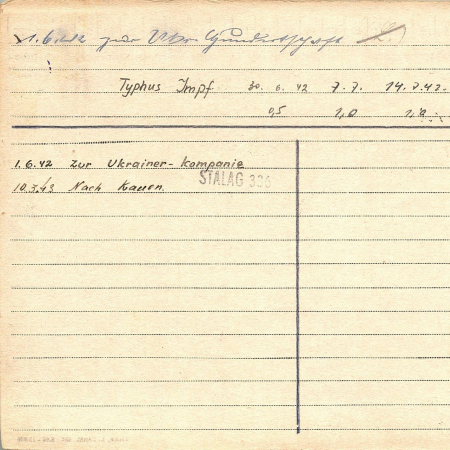 1.6.42 zur Ukr.
Typhus Impf. 30. 6. 42 7.7. 14.7.42.
0,5 1,0 1,0
1.6.42 Zur Ukrainer-Kompanie
STALAG
10.3.43 Nach Kauen.